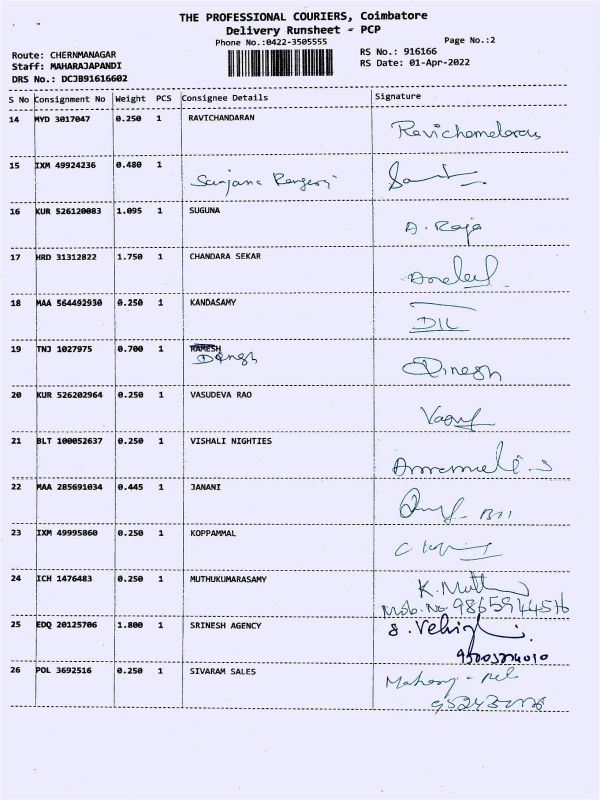 THE PROFESSIONAL COURIERS, Coimbatore
Delivery Runsheet - PCP
Phone No.:0422-3505555 Page No.:2
Route: CHERNMANAGAR RS No.: 916166
Staff: MAHARAJAPANDI RS Date: 01-Apr-2022
DRS No.: DCJB91616602
S No Consignment No Weight PCS Consignee Details Signature
14 MYD 3017047 0.250 1 RAVICHANDARAN
15 IXM 49924236 0.480 1 Sanjana
16 KUR 526120083 1.095 1 SUGUNA A. Raja
17 HRD 31312822 1.750 1 CHANDARA SEKAR
18 MAA 564492930 0.250 1 KANDASAMY
19 TNJ 1027975 0.700 1 RAMESH
Dinesh
20 KUR 526202964 0.250 1 VASUDEVA RAO
21 BLT 100052637 0.250 1 VISHALI NIGHTIES
22 MAA 285691034 0.445 1 JANANI
23 IXM 49995860 0.250 1 KOPPAMMAL
24 ICH 1476483 0.250 1 MUTHUKUMARASAMY K. Muth
Mob. No 9865944576
25 EDQ 20125706 1.800 1 SRINESH AGENCY
26 POL 3692516 0.250 1 SIVARAM SALES